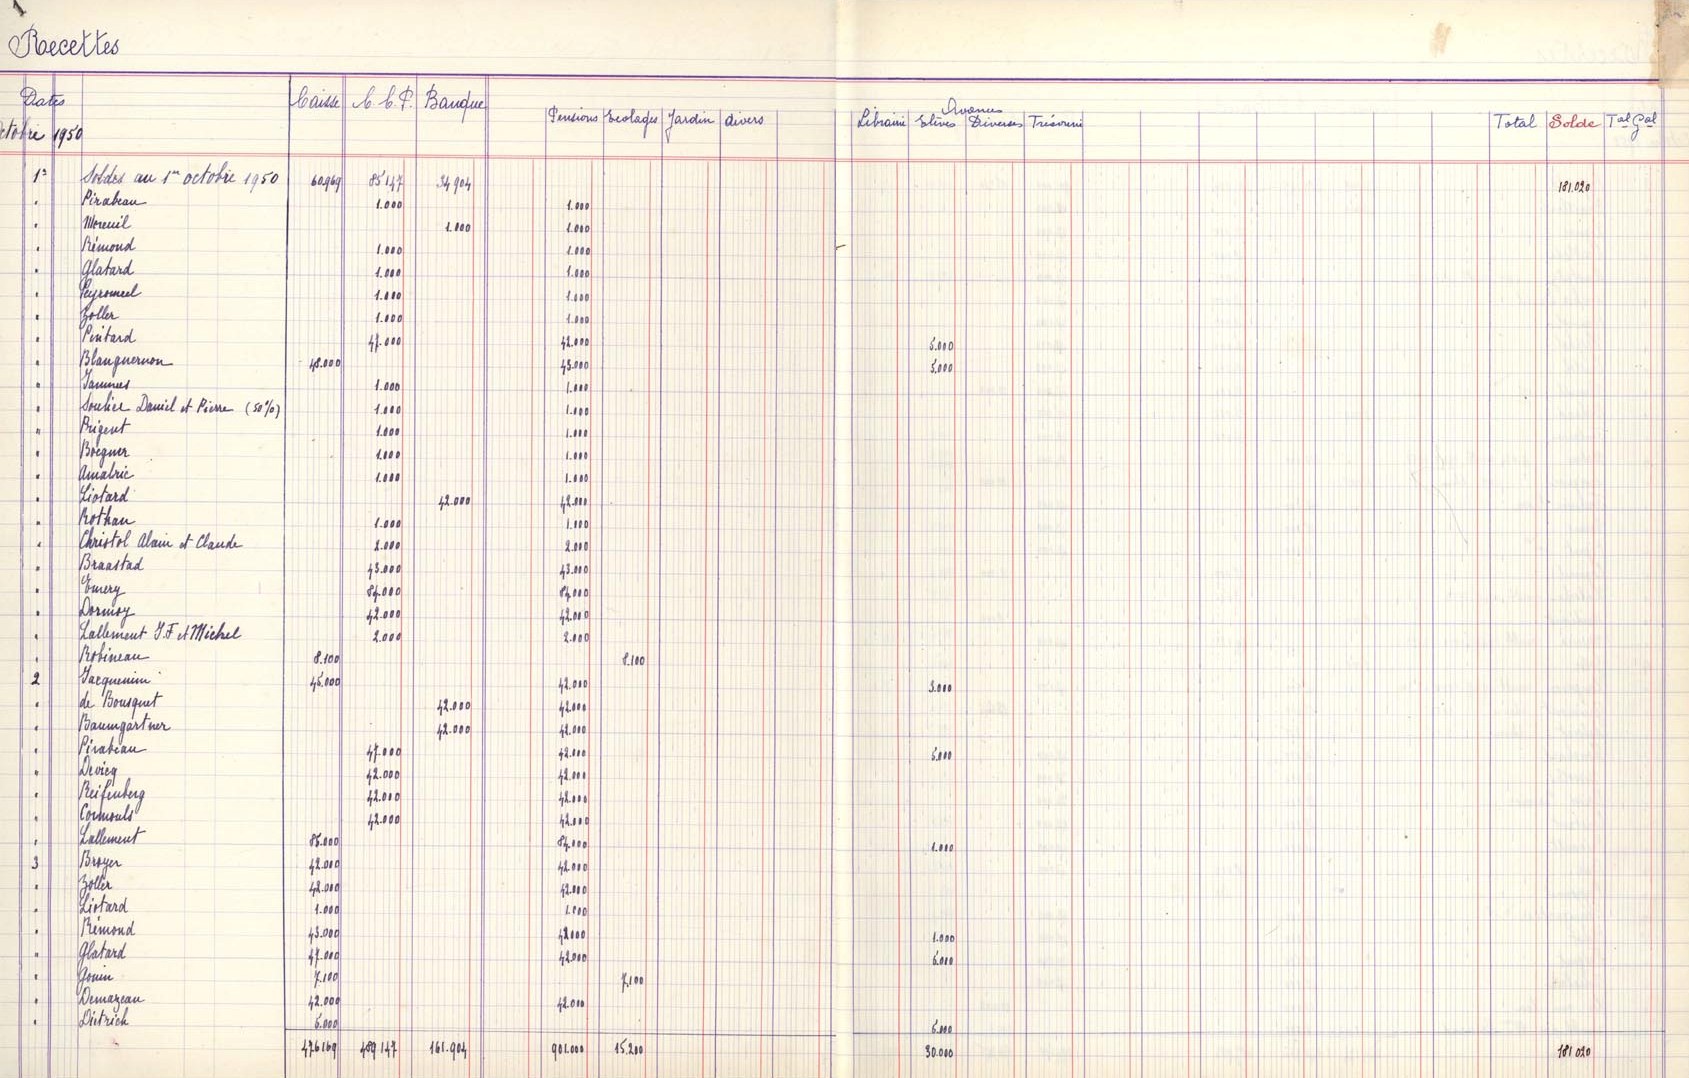 Recettes
Dates Caisse C.C.P. Banque Pensions Ecolages Jardin divers Librairie Avances Elèves Diverses Trésorerie Total Solde Tal Gal
octobre 1950
1er Soldes au 1er octobre 1950 60.969 85 147 34 904 181.020
" Pirabeau 1.000 1.000
" Moreuil 1.000 1.000
" Rémond 1.000 1.000
" Glatard 1.000 1.000
" Peyromeel 1.000 1.000
" Zoller 1.000 1.000
" Pintard 47.000 42.000 5.000
" Blanquernon 48.000 43.000 5.000
" Jammes 1.000 1.000
" Soulier Daniel et Pierre (50%) 1.000 1.000
" Brigent 1.000 1.000
" Boegner 1.000 1.000
" Amalric 1.000 1.000
" Liotard 42.000 42.000
" Rothan 1.000 1.000
" Christol Alain et Claude 2.000 2.000
" Braastad 43.000 43.000
" Emery 84.000 84.000
" Dormoy 42.000 42.000
" Lallement J.F et Michel 2.000 2.000
" Robineau 8.100 8.100
2 Jacquenin 45.000 42.000 3.000
" de Bousquet 42.000 42.000
" Baumgartner 42.000 42.000
" Pirabeau 47.000 42.000 5.000
" Devicq 42.000 42.000
" Reifenberg 42.000 42.000
" Cormouls 42.000 42.000
" Lallement 85.000 84.000 1.000
3 Broyer 42.000 42.000
" Zoller 42.000 42.000
" Liotard 1.000 1.000
" Rémond 43.000 42.000 1.000
" Glatard 47.000 42.000 5.000
" Gouin 7.100 7.100
" Demazeau 42.000 42.000
" Dietrich 5.000 5.000
476 169 489 147 161.904 901.000 15.200 30.000 181 020